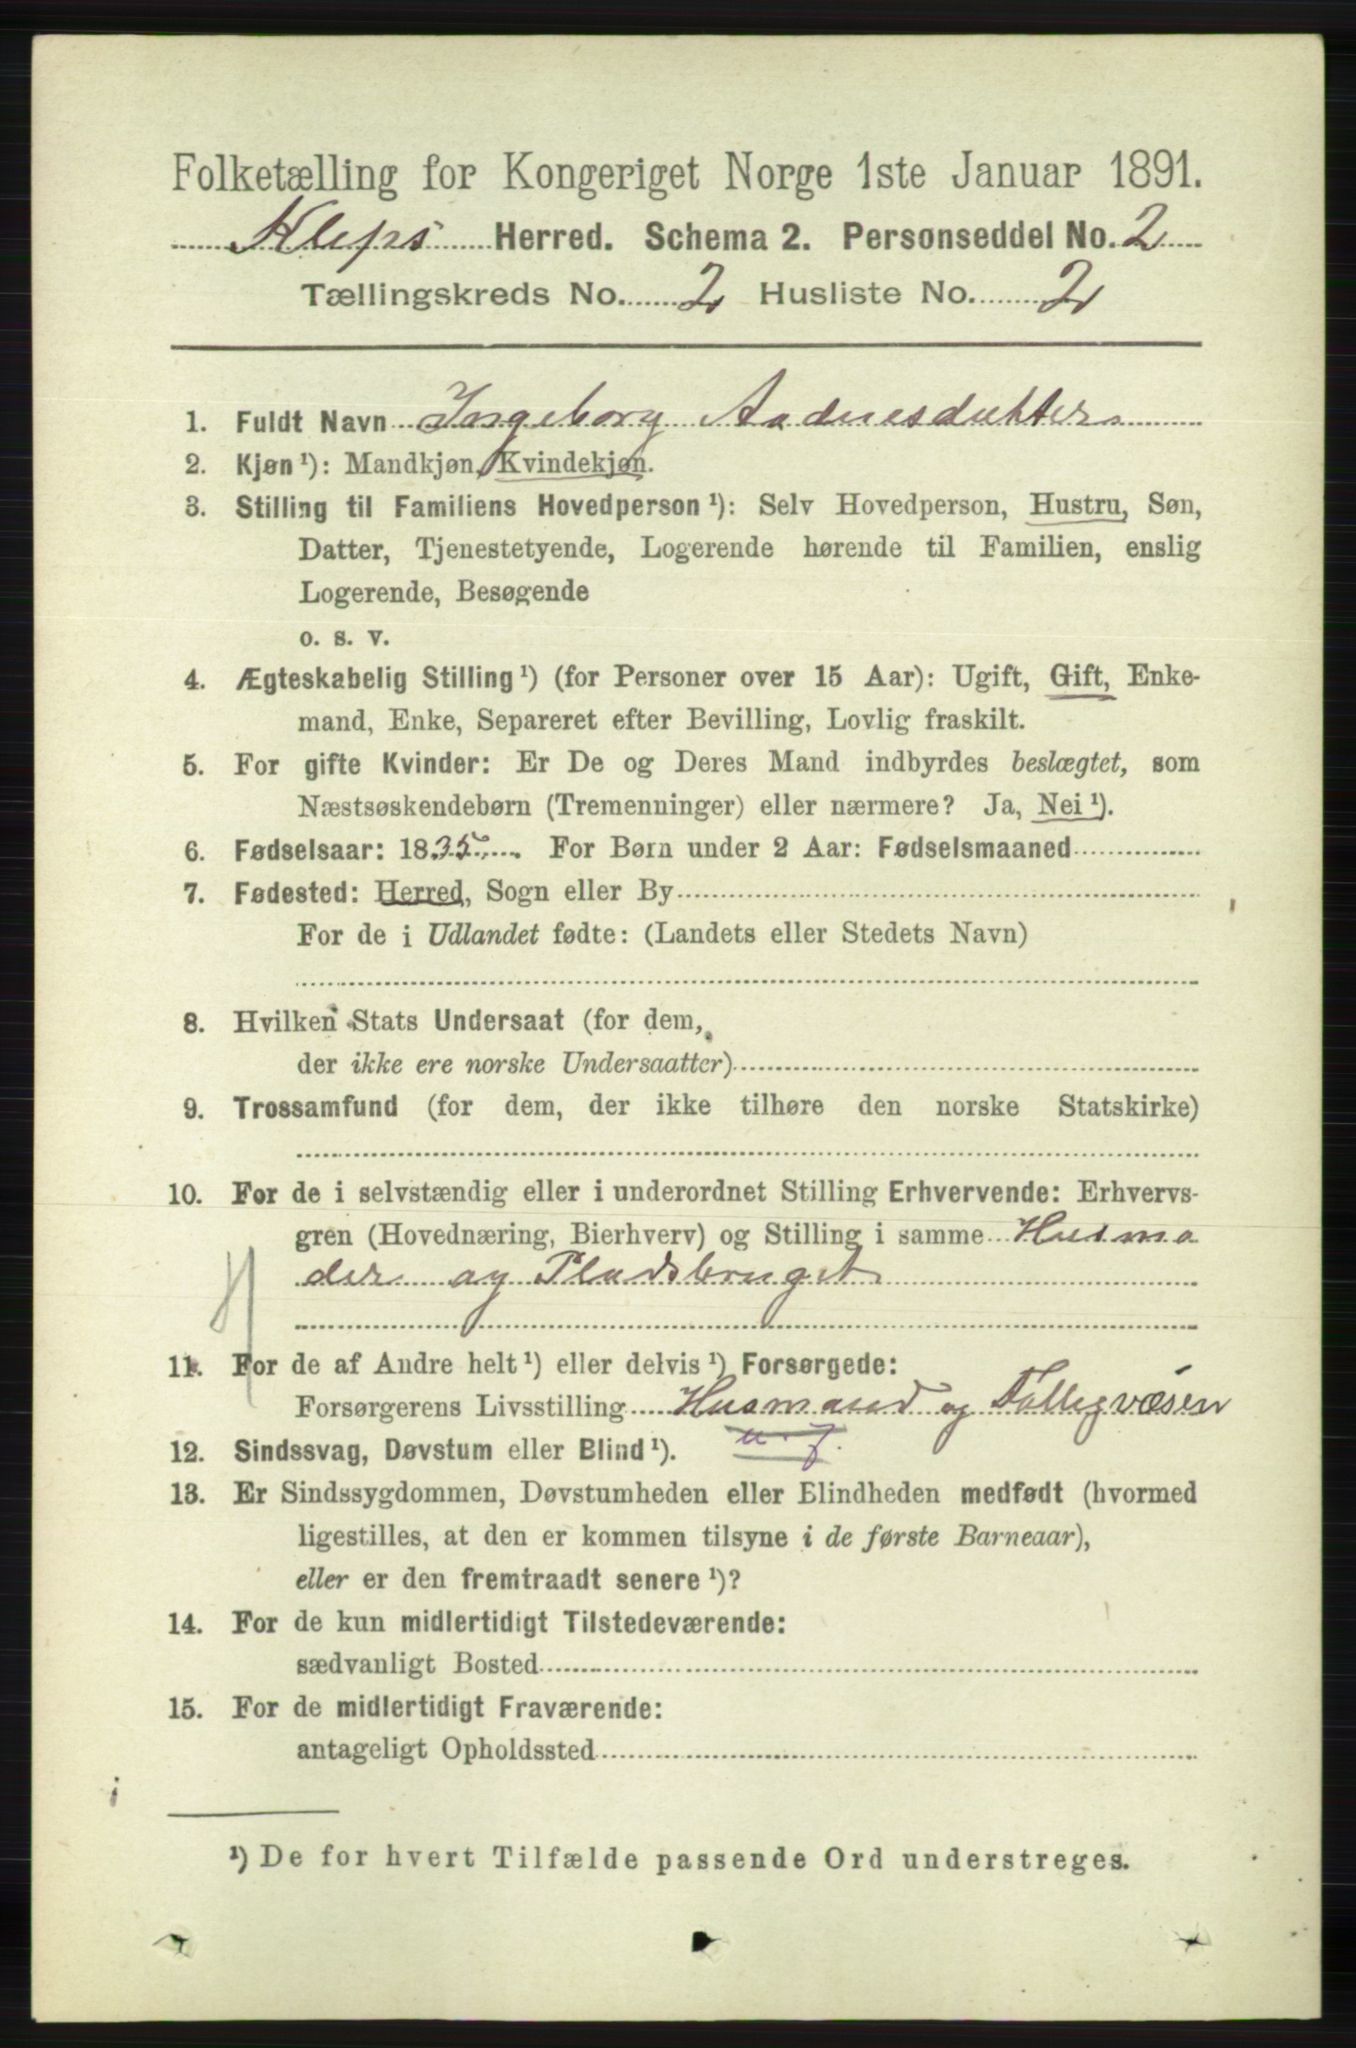 Folketælling for Kongeriget Norge 1ste Januar 1891.
Kleps Herred. Schema 2. Personseddel No. 2
Tællingskreds No. 2 Husliste No. 2
1. Fuldt Navn Ingeborg Aadnesdatter
2. Kjøn ¹): Mandkjøn, Kvindekjøn.
3. Stilling til Familiens Hovedperson ¹): Selv Hovedperson, Hustru, Søn,
Datter, Tjenestetyende, Logerende hørende til Familien, enslig
Logerende, Besøgende
o. s. v.
4. Ægteskabelig Stilling ¹) (for Personer over 15 Aar): Ugift, Gift, Enke-
mand, Enke, Separeret efter Bevilling, Lovlig fraskilt.
5. For gifte Kvinder: Er De og Deres Mand indbyrdes beslægtet, som
Næstsøskendebørn (Tremenninger) eller nærmere? Ja, Nei ¹).
6. Fødselsaar: 1835. For Børn under 2 Aar: Fødselsmaaned
7. Fødested: Herred, Sogn eller By
For de i Udlandet fødte: (Landets eller Stedets Navn)
8. Hvilken Stats Undersaat (for dem,
der ikke ere norske Undersaatter)
9. Trossamfund (for dem, der ikke tilhøre den norske Statskirke)
10. For de i selvstændig eller i underordnet Stilling Erhvervende: Erhvervs-
gren (Hovednæring, Bierhverv) og Stilling i samme Husmo
der og Pladsbruget
11. For de af Andre helt ¹) eller delvis ¹) Forsørgede:
Forsørgerens Livsstilling Husmand og Fattigvæsen
u. f.
12. Sindssvag, Døvstum eller Blind ¹).
13. Er Sindssygdommen, Døvstumheden eller Blindheden medfødt (hvormed
ligestilles, at den er kommen tilsyne i de første Barneaar),
eller er den fremtraadt senere ¹)?
14. For de kun midlertidigt Tilstedeværende:
sædvanligt Bosted
15. For de midlertidigt Fraværende:
antageligt Opholdssted
¹) De for hvert Tilfælde passende Ord understreges.